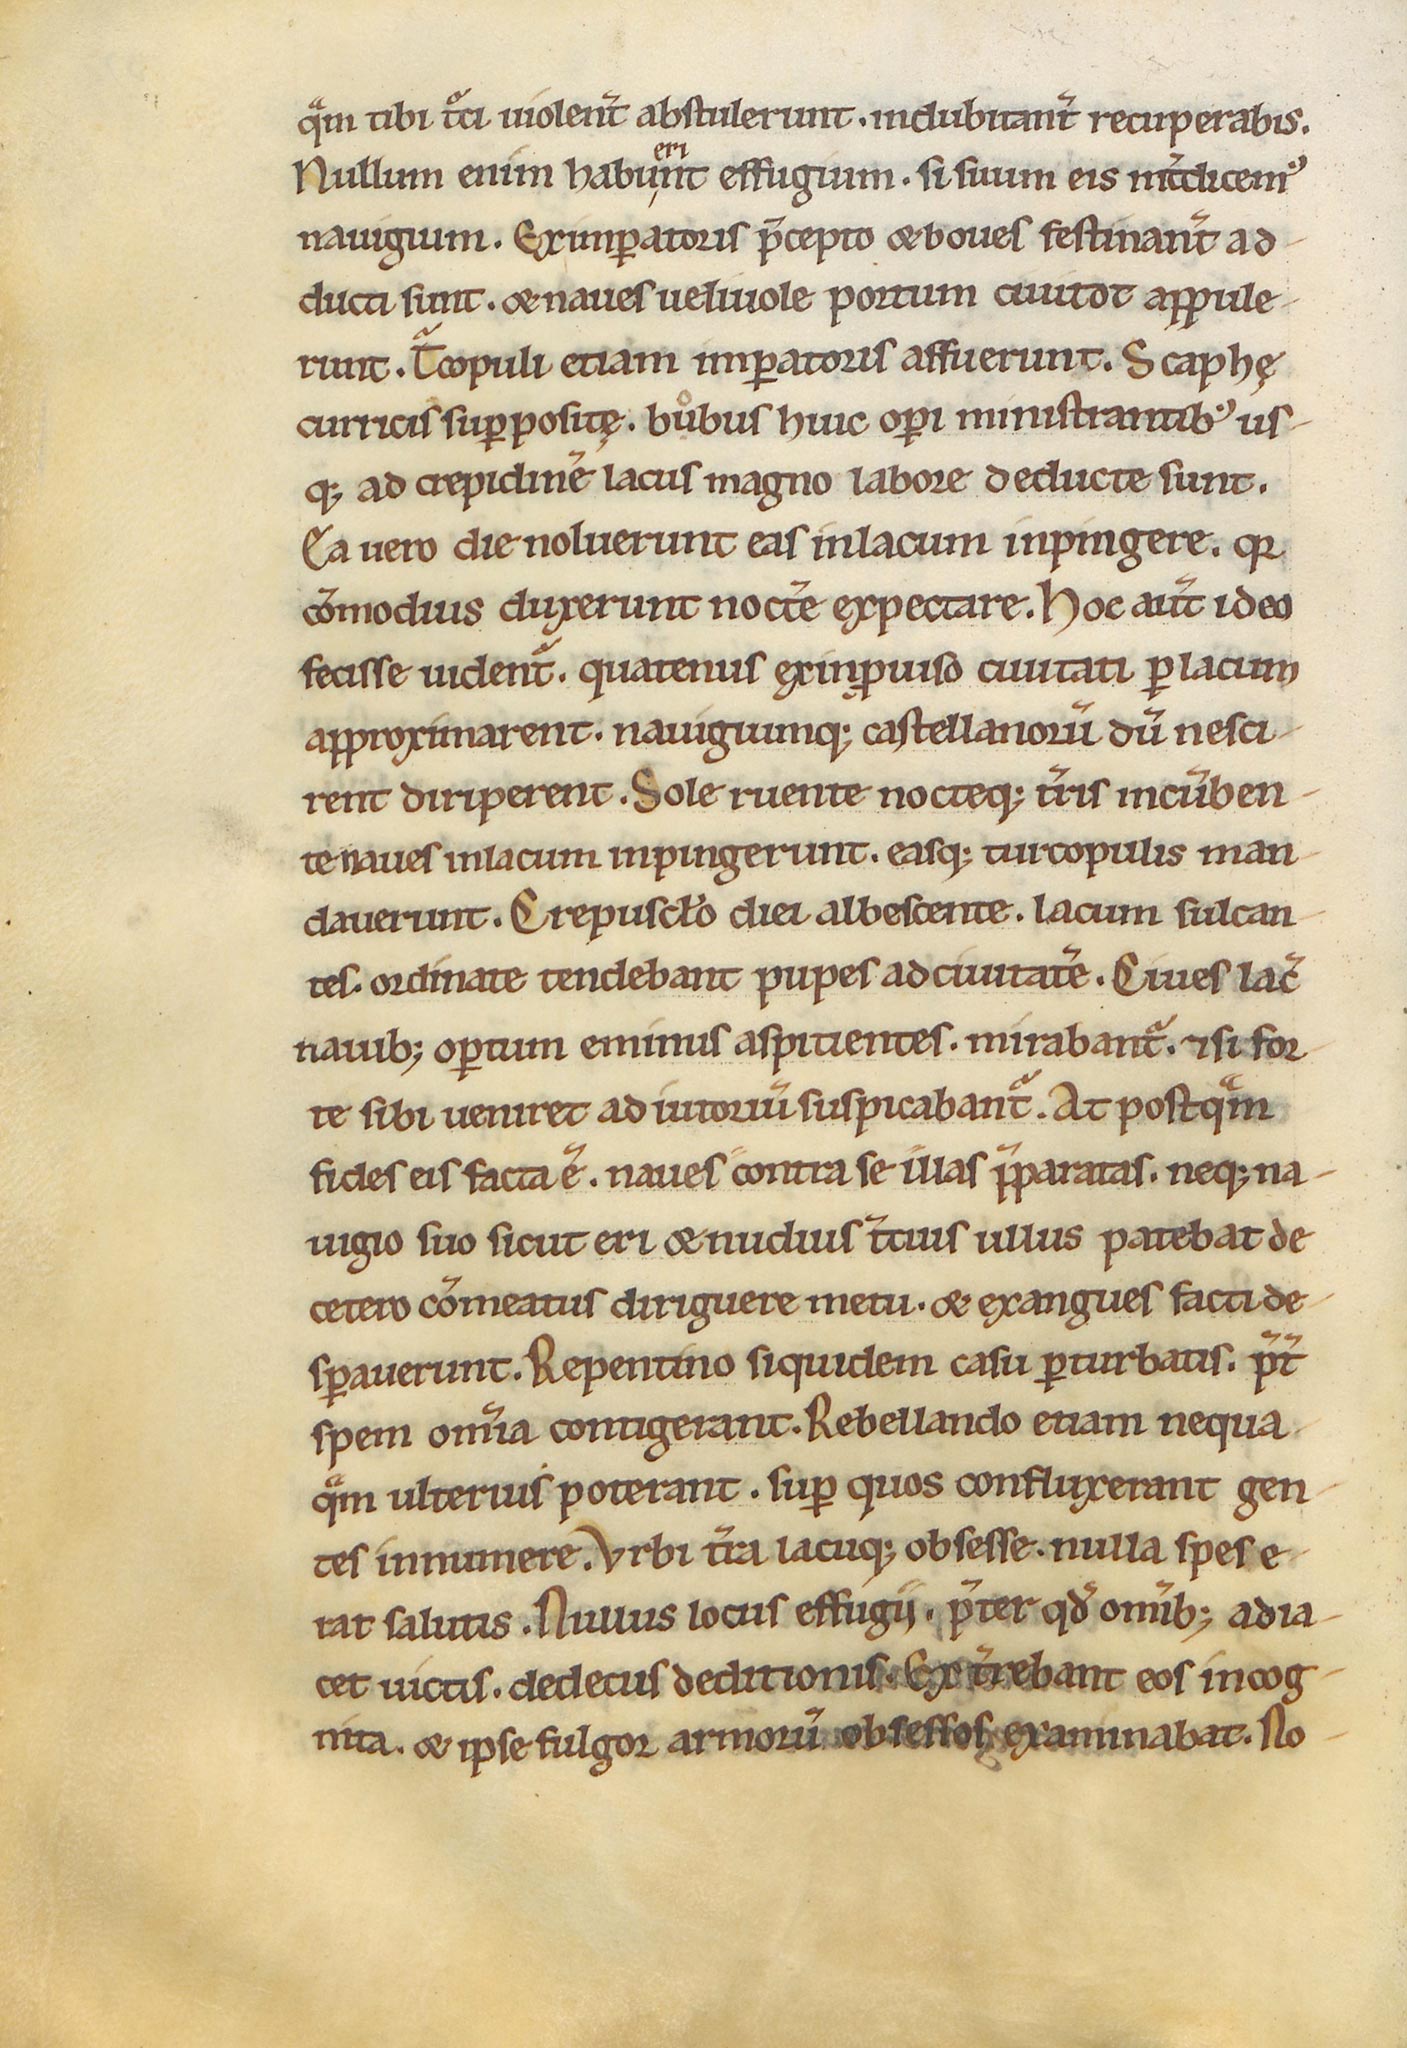 qͣm tibi tͣci uiolent̄ abstulerunt. indubitant̄ recuperabis.
Nullum enim habueriṇt effugium. si suum eis int̄dicemꝰ
nauigium. Ex imꝑatoris p̄cepto & boues festinant̄ ad
ducti sunt. & naues ueliuole portum ciuitot appule
runt. Tͣcopuli etiam imꝑatoris affuerunt. Scaphę
curricis suꝑpositę. buͦbus huic oꝑi ministrantibꝰ us
q; ad crepidinē lacus magno labore deducte sunt.
Ea uero die noluerunt eas in lacum inpingere. qꝛ
cōmodius duxerunt noctē expectare. Hoc aut̄ ideo
fecisse uident᷑. quatenus ex inꝓuiso ciuitati ꝑ lacum
approximarent. nauigiumq; castellanorū dū nesci
rent diriperent. Sole ruente nocteq; t̄ris incūben
te naues in lacum inpingerunt. easq; turcopulis man
dauerunt. Crepuscl̄o diei albescente. lacum sulcan
tes. ordinate tendebant pupes ad ciuitatē. Ciues lac̄
nauib; oꝑtum eminus aspicientes. mirabant᷑. ⁊ si for
te sibi ueniret adiutoriū suspicabant᷑. At postqͣm
fides eis facta ē. naues contra se illas p̄paratas. neq; na
uigio suo sicut eri & nudius t̄cius ullus patebat de
cetero cōmeatus diriguere metu. & exangues facti de
sꝑauerunt. Repentino siquidem casu ꝑturbatis. p̄t̄
spem om̄ia contigerant. Rebellando etiam nequa
qͣm ulterius poterant. suꝑ quos confluxerant gen
tes innumere. Vrbi t̄ra lacuq; obsesse. nulla spes e
rat salutis. Nullus locus effugij. p̄ter qd̄ om̄ib; adia
cet uictis. dedecus deditionis. Ext̄rebant eos incog
nita. & ipse fulgor armorū obsessos examinabat. No